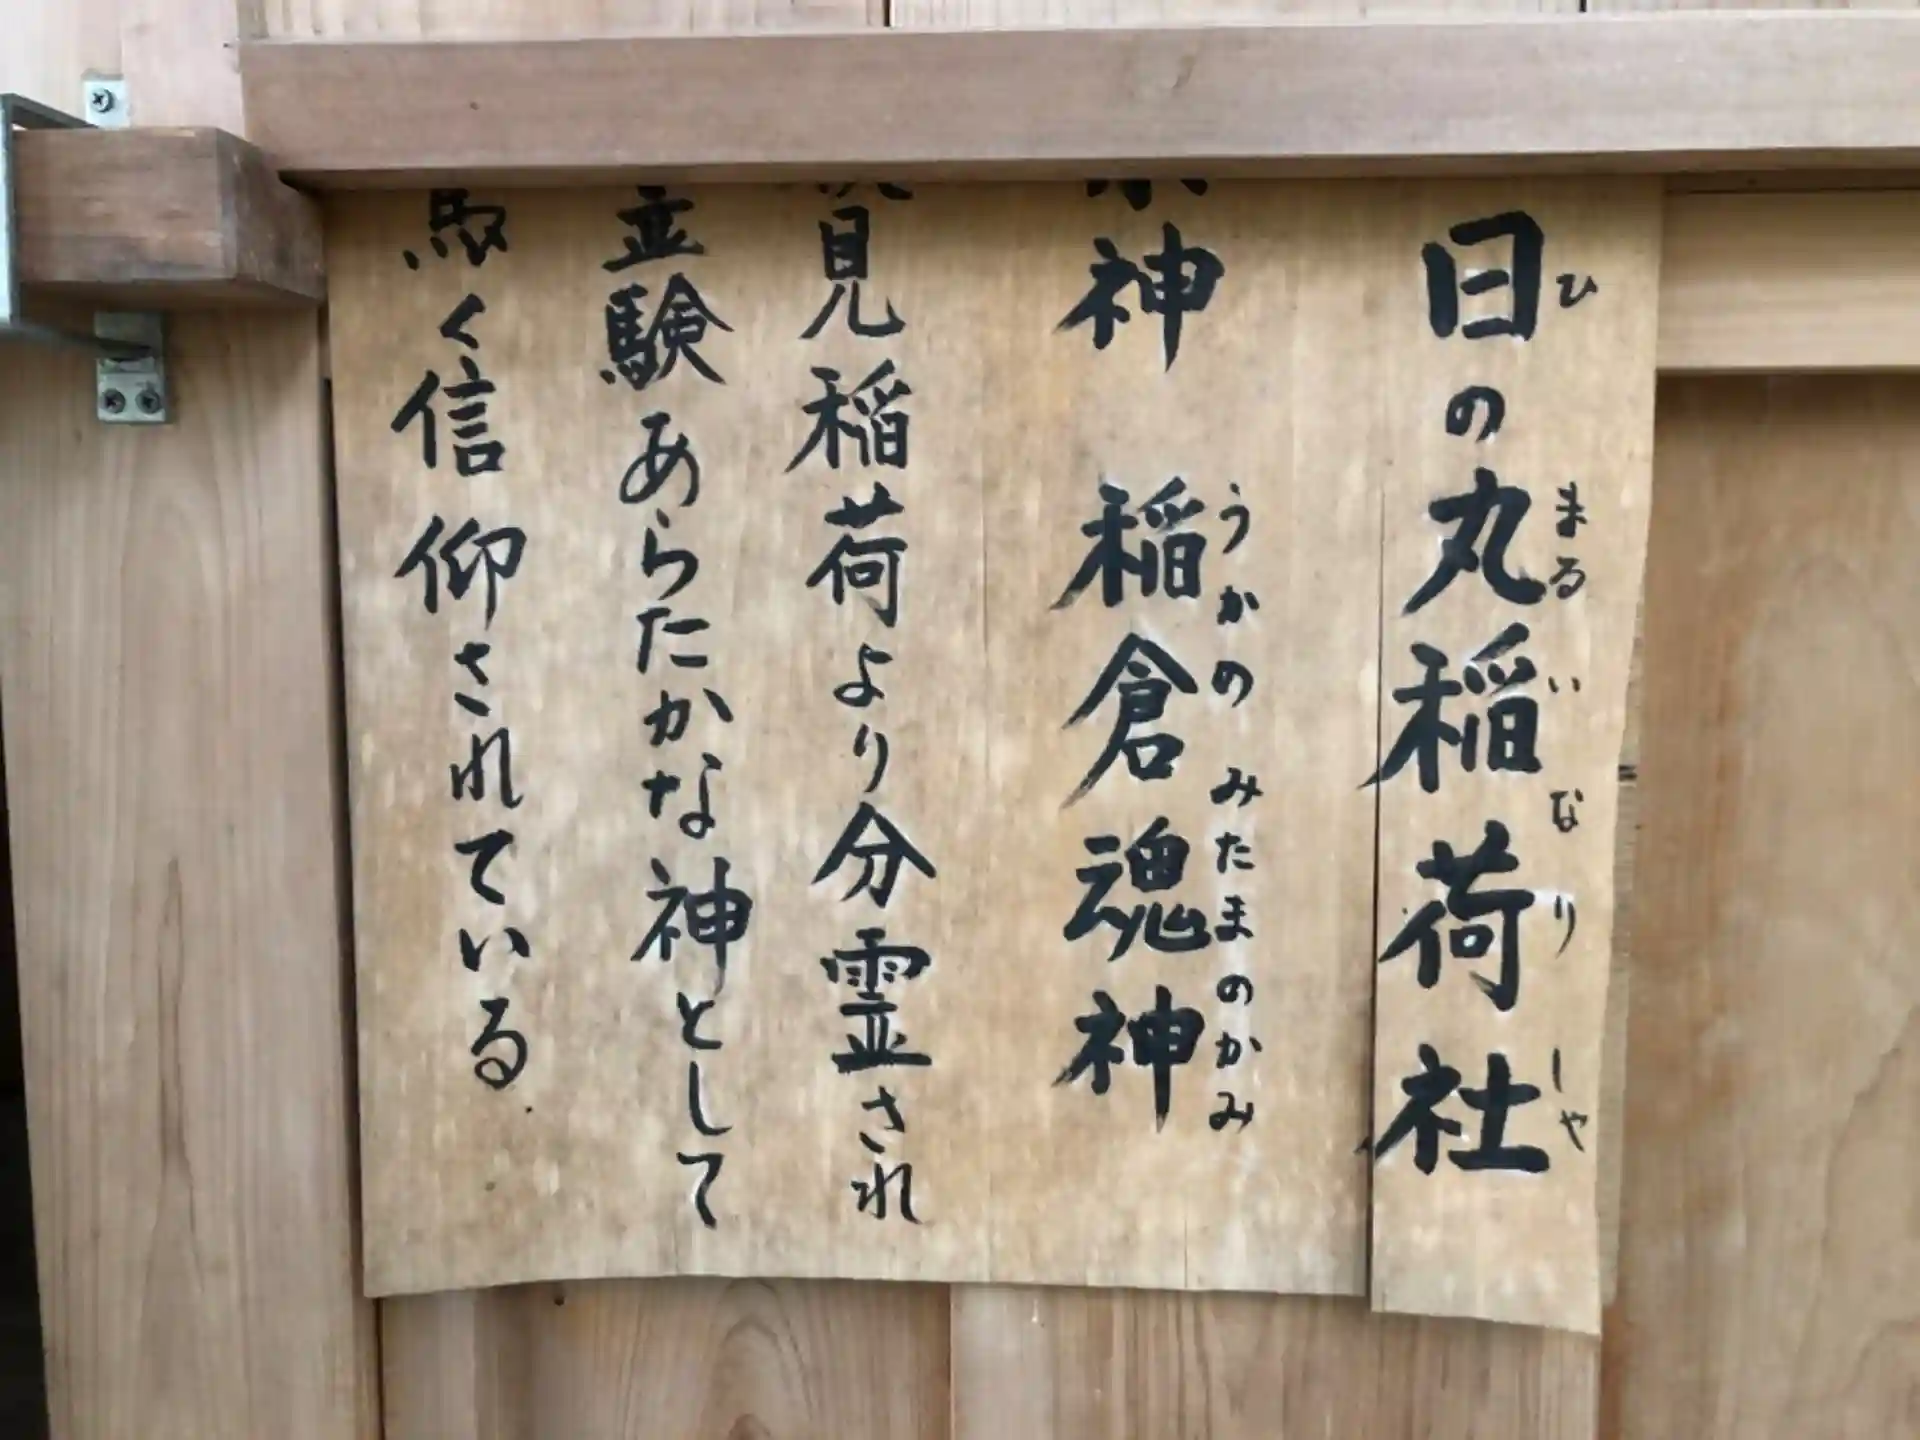 日の丸稲荷社
ひ まる いなり しや
神 稲倉魂神
うかの みたまのかみ
見稲荷より分霊され
霊験あらたかな神として
く信仰されている